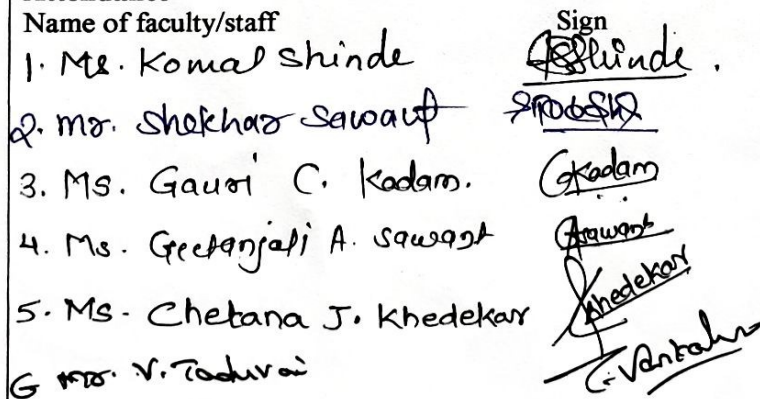 Name of faculty/staff Sign
1. Ms. Komal Shinde KSShinde.
2. mr. Shekhar Sawant
3. Ms. Gauri C. Kadam. GKadam
4. Ms. Geetanjali A. Sawant GSawant
5. Ms. Chetana J. Khedekar Khedekar
6 mr. V. Taduvai